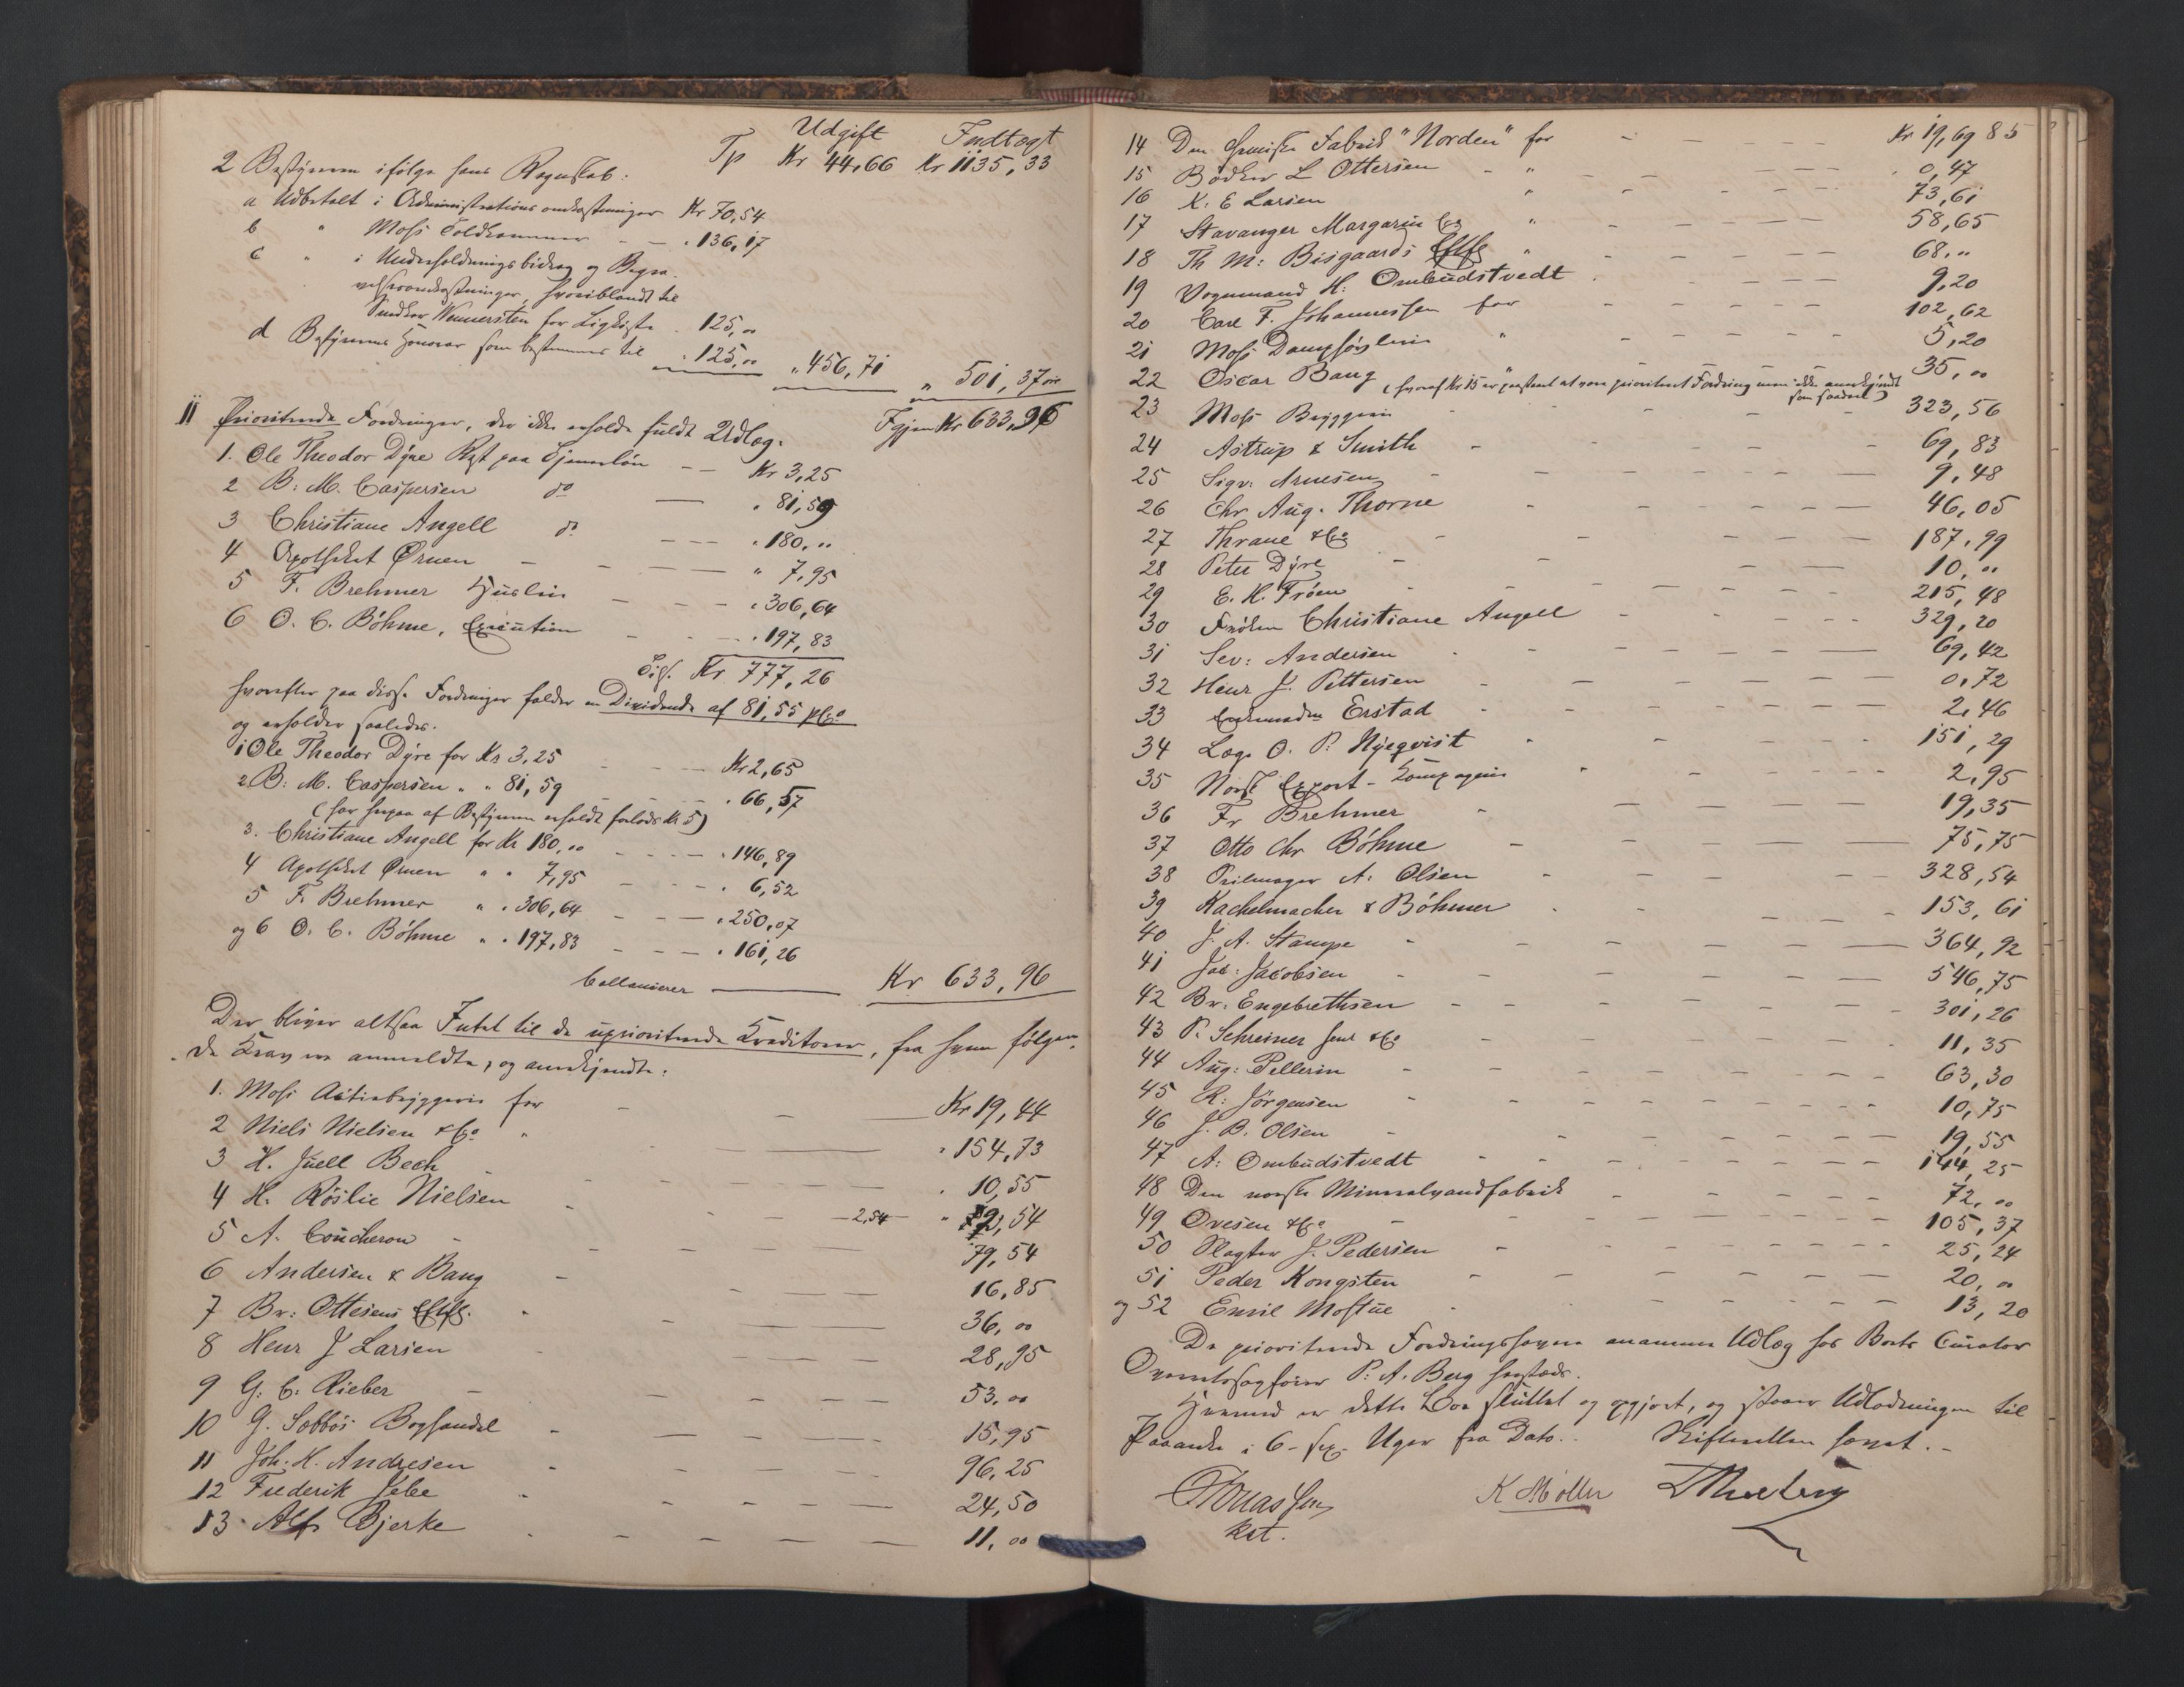 Udgift Indtægt
Tp Kr 44,66 Kr 1135,33
2 Bestyreren ifølge hans Regnskab:
a Udbetalt i Administrationsomkostninger Kr 70,54
b " Moss Toldkammer - — " 136,17
c " i Underholdningsbidrag og Begra-
velsesomkostninger, hvoriblandt til
Snedker Wennersten for Ligkiste " 125,00
d Bestyrerens Honorar som bestemmes til " 125,00 " 456,71 " 501,37 øre
Igjen Kr 633,96
II Prioriterede Fordringer, der ikke erholde fuldt Udlæg:
1. Ole Theodor Dyre Rest paa Tjenerløn — — Kr 3,25
2 B: M. Caspersen do — " 81,59
3 Christiane Angell do — — — " 180, "
4 Apotheket Ørnen — — — — " 7,95
5 F. Brehmer Husleie — — — " 306,64
6 O. C. Böhme, Execution — — — " 197,83
Tils. Kr 777,26
hvorefter paa disse Fordringer falder en Dividende af 81,55 pCt
og erholder saaledes.
1 Ole Theodor Dyre for Kr 3,25 — — — Kr 2,65
2 B: M. Caspersen " " 81,59 — — — " 66,57
(har herpaa af Bestyreren erholdt forlods Kr 5)
3. Christiane Angell for Kr 180,00 — — — " 146,89
4 Apotheket Ørnen " " 7,95 — — — " 6,52
5 F. Brehmer " " 306,64 — — — " 250,07
og 6 O. C. Böhme " " 197,83 — — — " 161,26
Ballancerer — Kr 633,96
Der bliver altsaa Intet til de uprioriterede Kreditorer, fra hvem følgen-
de Krav ere anmeldte, og anerkjendte:
1. Moss Actiebryggeri for — — — Kr 19,44
2 Niels Nielsen & Co " — — " 154,73
3 H. Juell Bech " — — — " 10,55
4 H. Röslie Nielsen " — — — 2,54 " 72,54
5 A. Coucheron " — — — 79,54
6 Andersen & Bang — — — 16,85
7 Br: Ottesens Eftf. " — — — 36,00
8 Henr J Larsen — — — 28,95
9 G: C: Rieber — — — 53,00
10 G. Sobbös Boghandel — — — 15,95
11 Joh. H. Andresen — — — 96,25
12 Frederik Jebe — — — 24,50
13 Alf Bjerke — — — 11,00
14 Den chemiske Fabrik "Norden" for — — — Kr 19,69 85
15 Bödker L Ottersen — " — — — 0,47
16 K. E Larsen " — — — 73,61
17 Stavanger Margarin Co " — — — 58,65
18 Th M: Bisgaards Eftf " — — — 68. "
19 Vognmand H: Ombudstvedt — — — 9,20
20 Carl F. Johannessen for — — — 102,62
21 Moss Dampføsleri " — — — 5,20
22 Oscar Bang (hvoraf Kr 15 er paastaaet at være prioriteret Fordring men ikke anerkjendt 35,00
som saadant)
23 Moss Bryggeri — — — 323,56
24 Astrup & Smith — — — 69,83
25 Sigv: Arnesen — — — 9,48
26 Chr Aug. Thorne — — — 46,05
27 Thrane & Co — — — 187,99
28 Peter Dyre — — — 10,00
29 E. H. Fröen — — — 215,48
30 Fröken Christiane Angell — — — 329,20
31 Sev: Andersen — — — 69,42
32 Henr J. Pettersen — — — 0,72
33 Erstad — — — 2,46
34 Læge O. P: Nyeqvist — — — 151,29
35 Norsk Export-Kompagni — — — 2,95
36 Fr Brehmer — — — 19,35
37 Otto Chr Böhme — — — 75,75
38 Pibemager A: Olsen — — — 328,54
39 Kachelmacher & Böhmer — — — 153,61
40 J. A. Stampe — — — 364,92
41 Jac: Jacobsen — — — 546,75
42 Br. Engebrethsen — — — 301,26
43 P. Schreiner sen & Co — — — 11,35
44 Aug: Pellerin — — — 63,30
45 R: Jörgensen — — — 10,75
46 J. B. Olsen — — — 19,55
47 A: Ombudstvedt — — — 144,25
48 Den norske Mineralvandfabrik — — — 72,00
49 Ovesen & Co — — — 105,37
50 Slagter J. Pedersen — — — 25,24
51 Peder Kongsten — — — 20,00
og 52 Emil Mostue — — — 13,20
De prioriterede Fordringshavere anammer Udlæg hos Boets Curator
Overretssagfører P: A. Berg hersteds.
Hermed er dette Bo sluttet og opgjort, og staaer Udlodningen til
Paaanke i 6 - sex - Uger fra Dato. . Skifteretten hævet. -
K Møller
kst.